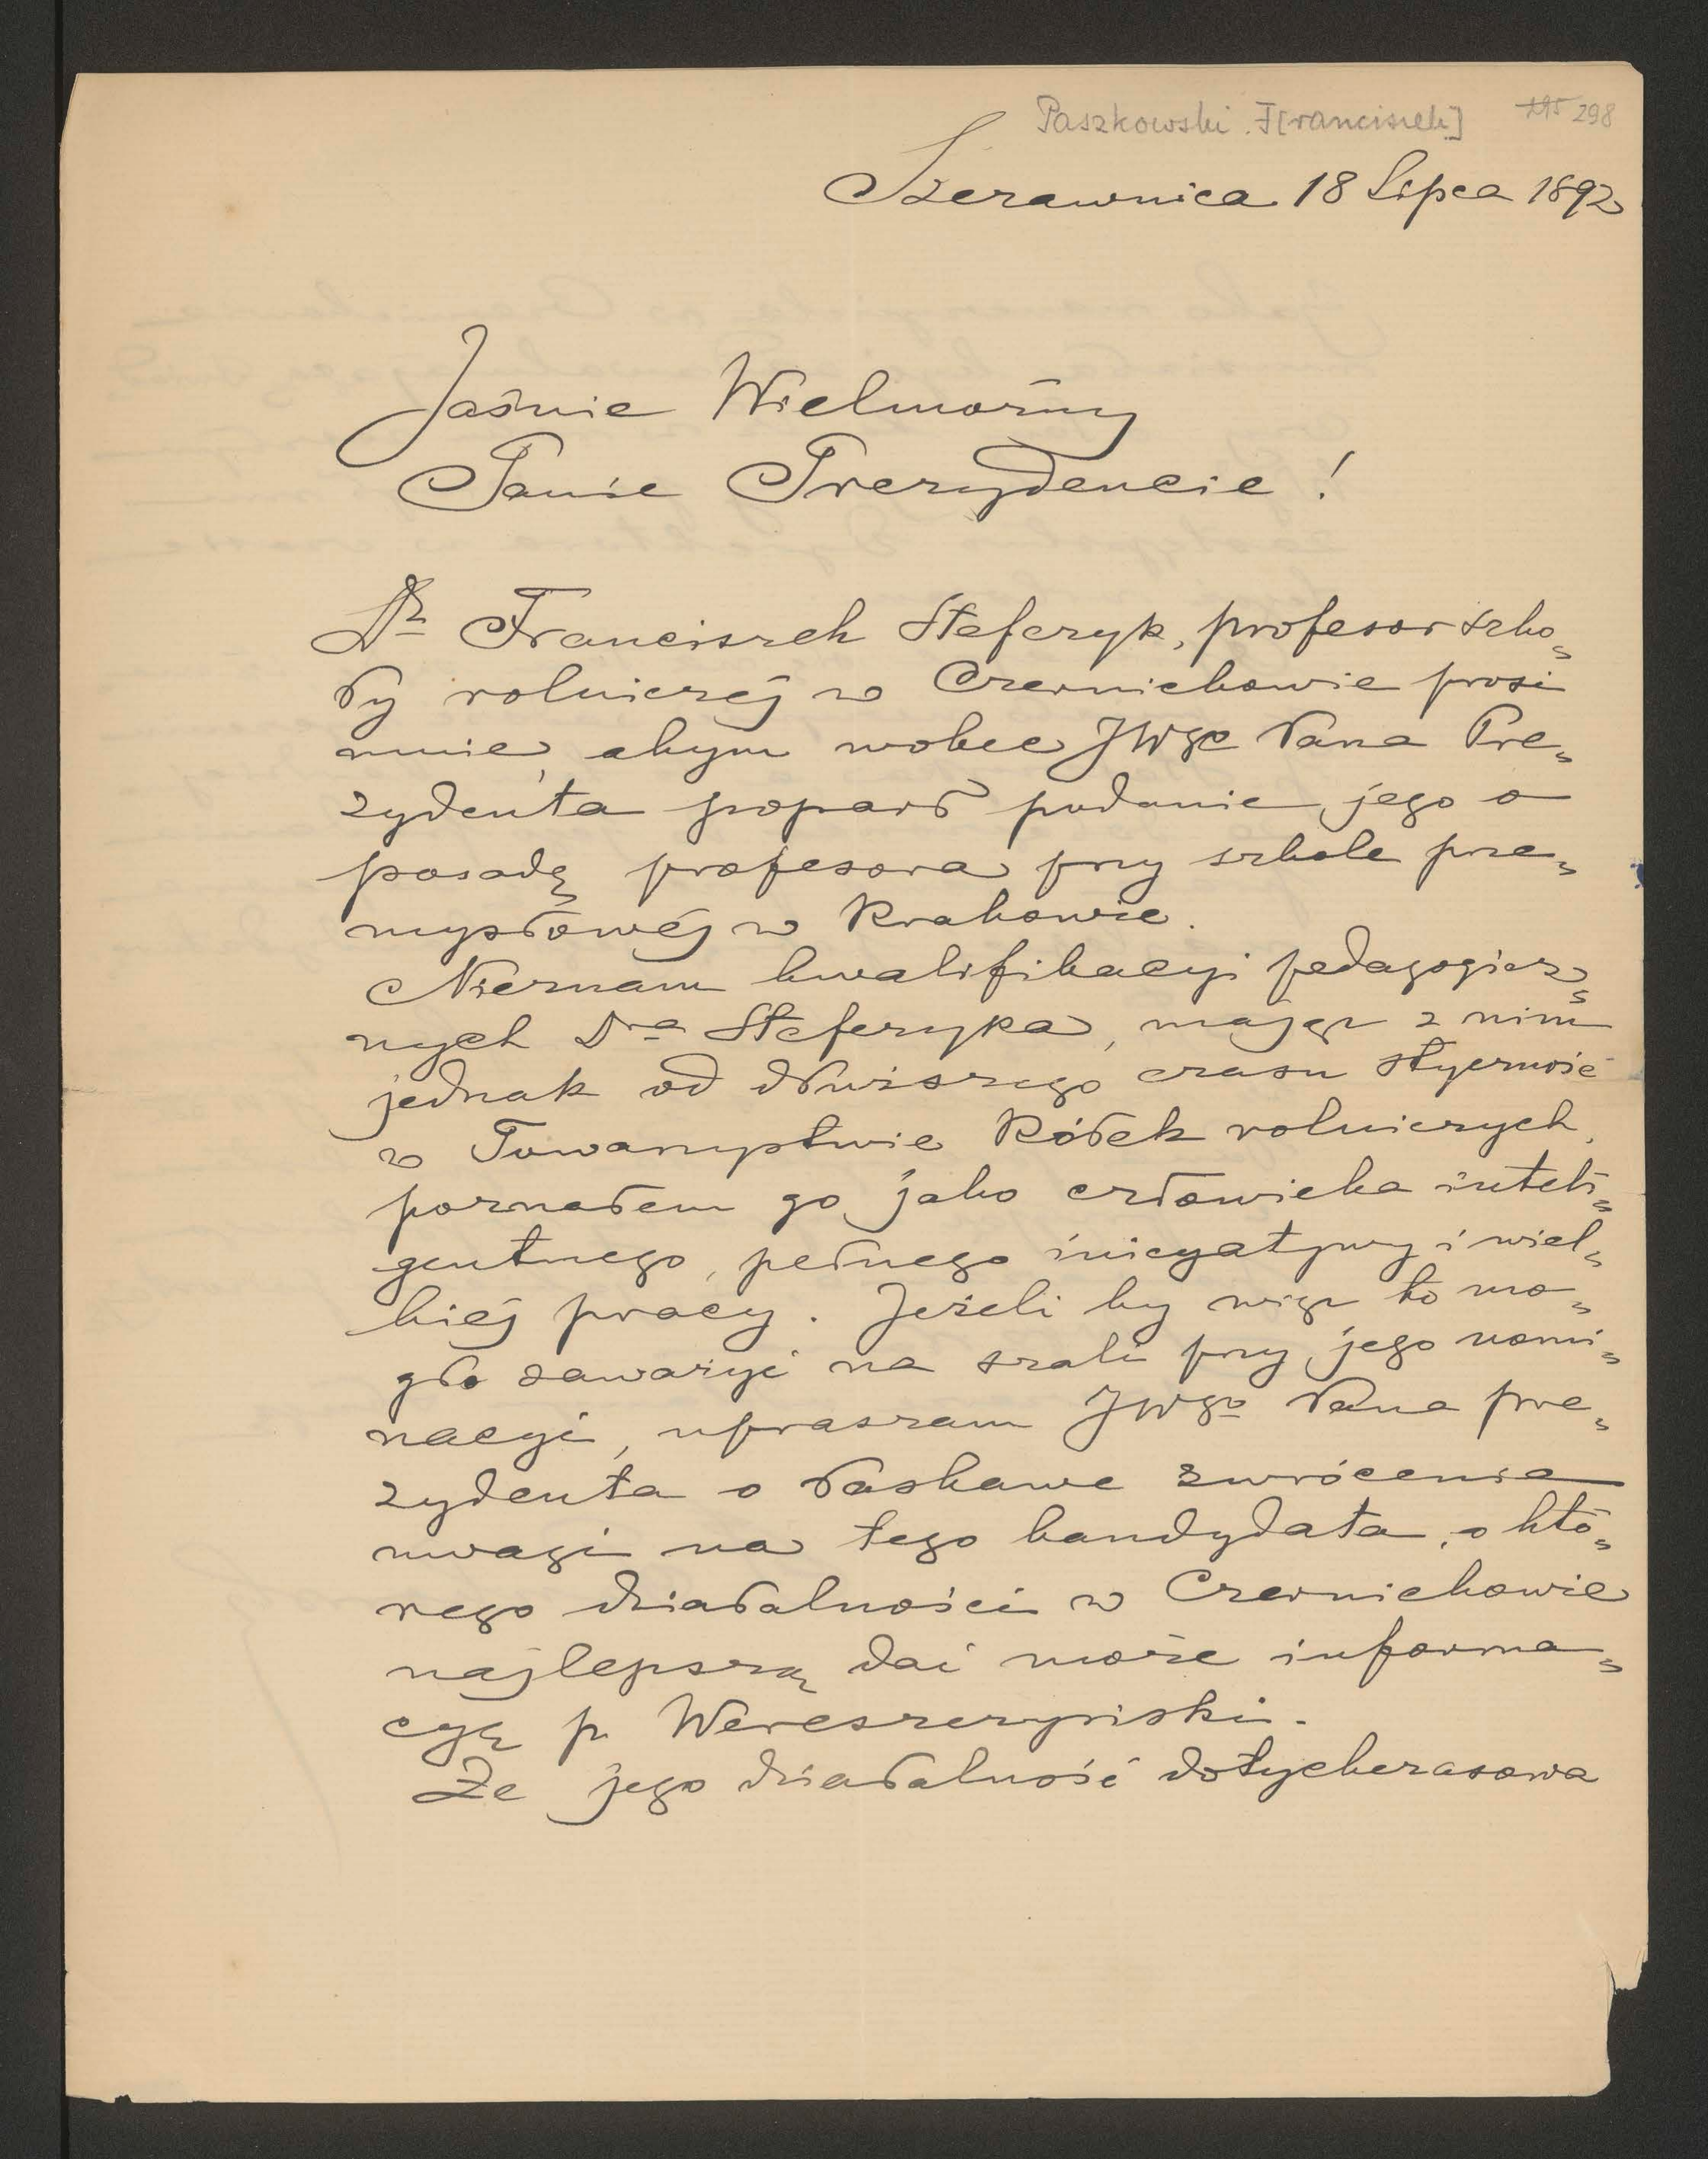 Paszkowski F[ranciszek] 298
Szczawnica 18 Lipca 1892
Jaśnie Wielmożny
Panie Prezydencie!
Dr Franciszek Stefczyk, profesor szko=
ły rolniczej w Czernichowie prosi
mnie, abym wobec JWgo Pana Pre=
zydenta poparł podanie jego o
posadę profesora przy szkole prze=
mysłowéj w Krakowie.
Nieznam kwalifikacyi pedagogicz=
nych Dra Stefczyka, mając z nim
jednak od dłuższego czasu styczność
w Towarzystwie Kółek rolniczych,
poznałem go jako człowieka inteli=
gentnego, pełnego inicyatywy i wiel=
kiéj pracy. Jeżeli by więc to mo=
gło zaważyć na szali przy jego nomi=
nacyi, upraszam JWgo Pana pre=
zydenta o łaskawe zwrócenie
uwagi na tego kandydata, o któ=
rego działalności w Czernichowie
najlepszą dać może informa=
cyę p. Wereszczyński.
Że jego działalność dotychczasowa